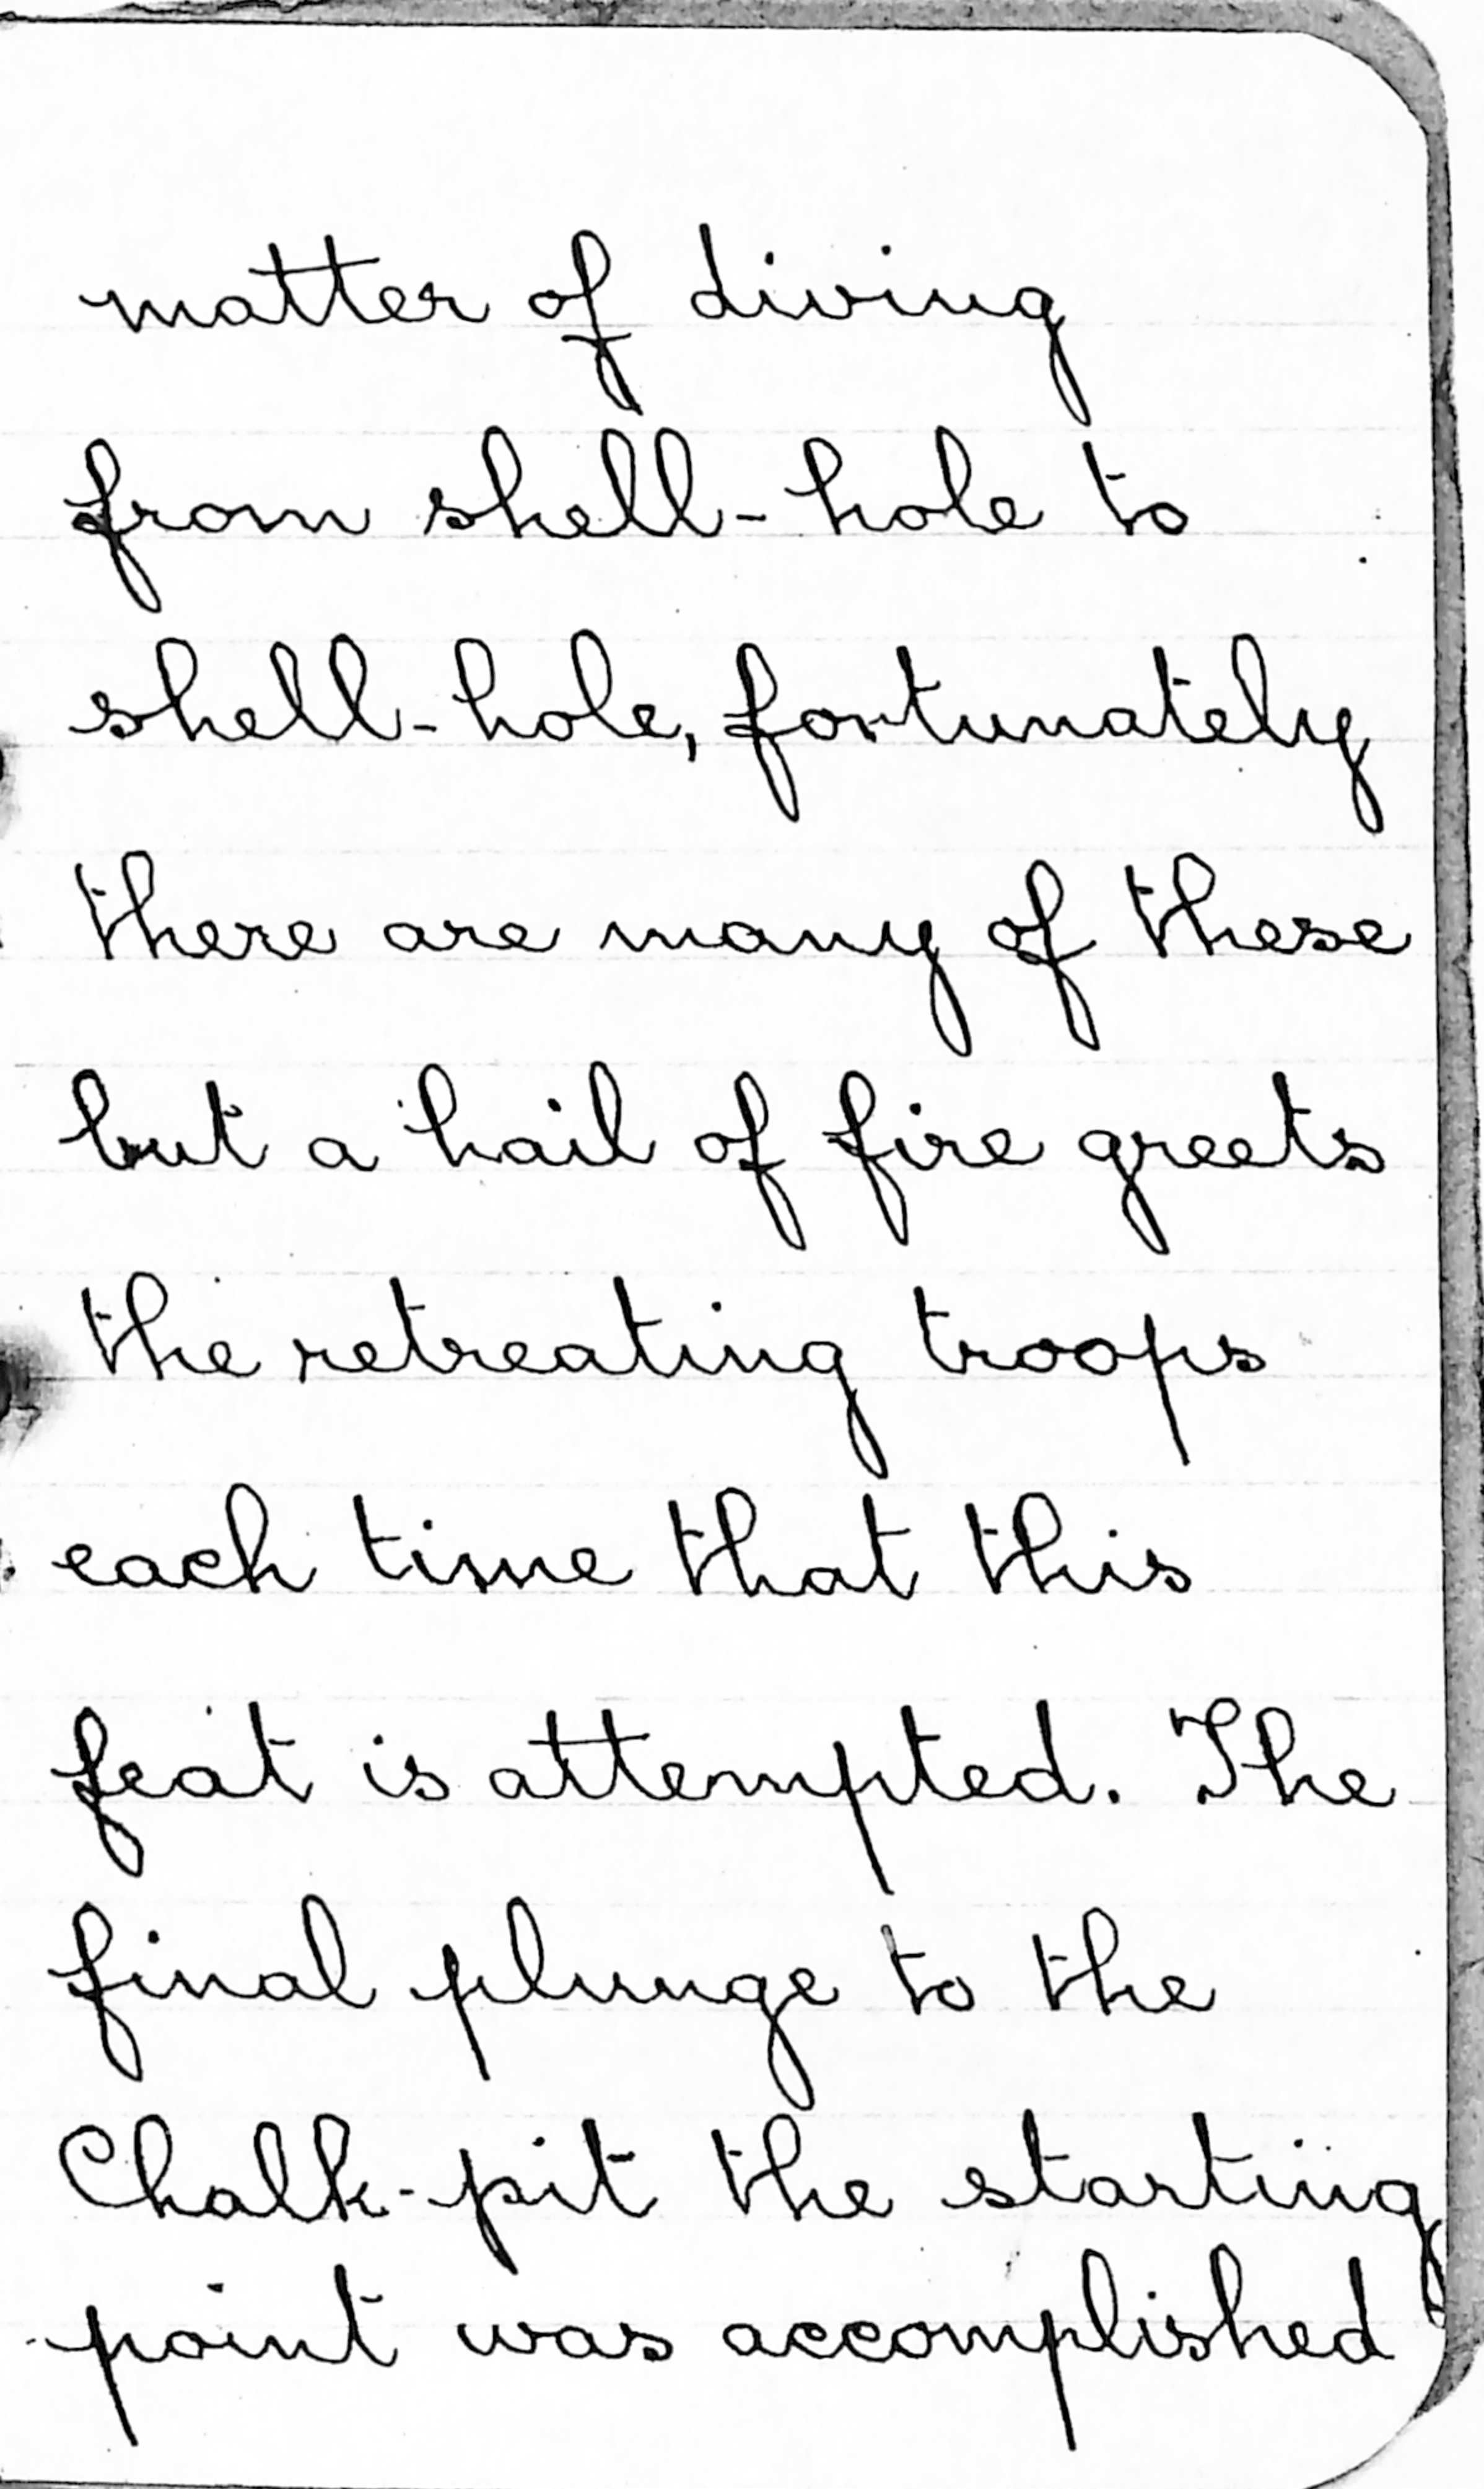 matter of diving
from shell-hole to
shell-hole, fortunately
there are many of these
but a hail of fire greets
the retreating troops
each time that this
feat is attempted. The
final plunge to the
Chalk-pit the starting
point was accomplished